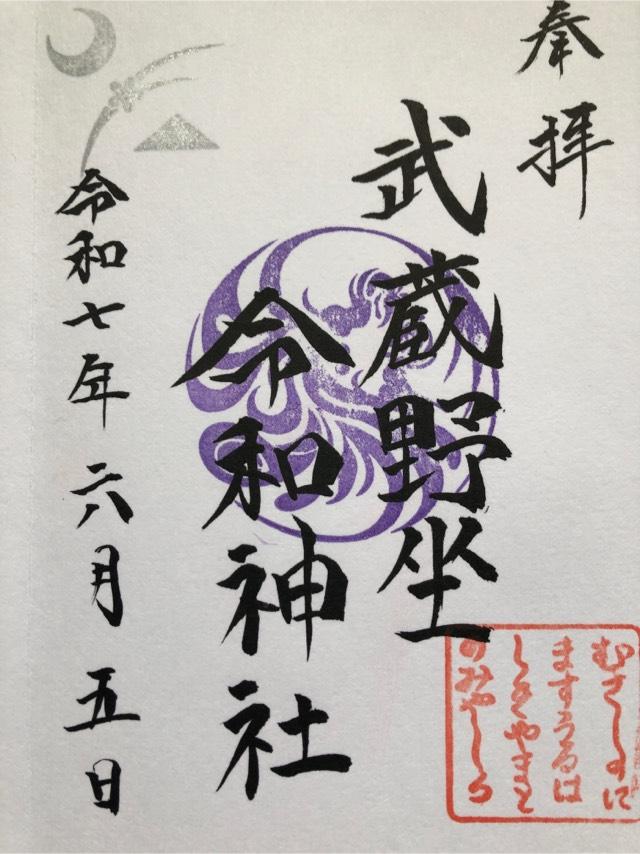 奉拝
武蔵野坐
令和神社
令和七年六月五日
むさしのに
ますうるは
しきやまと
のみやしろ